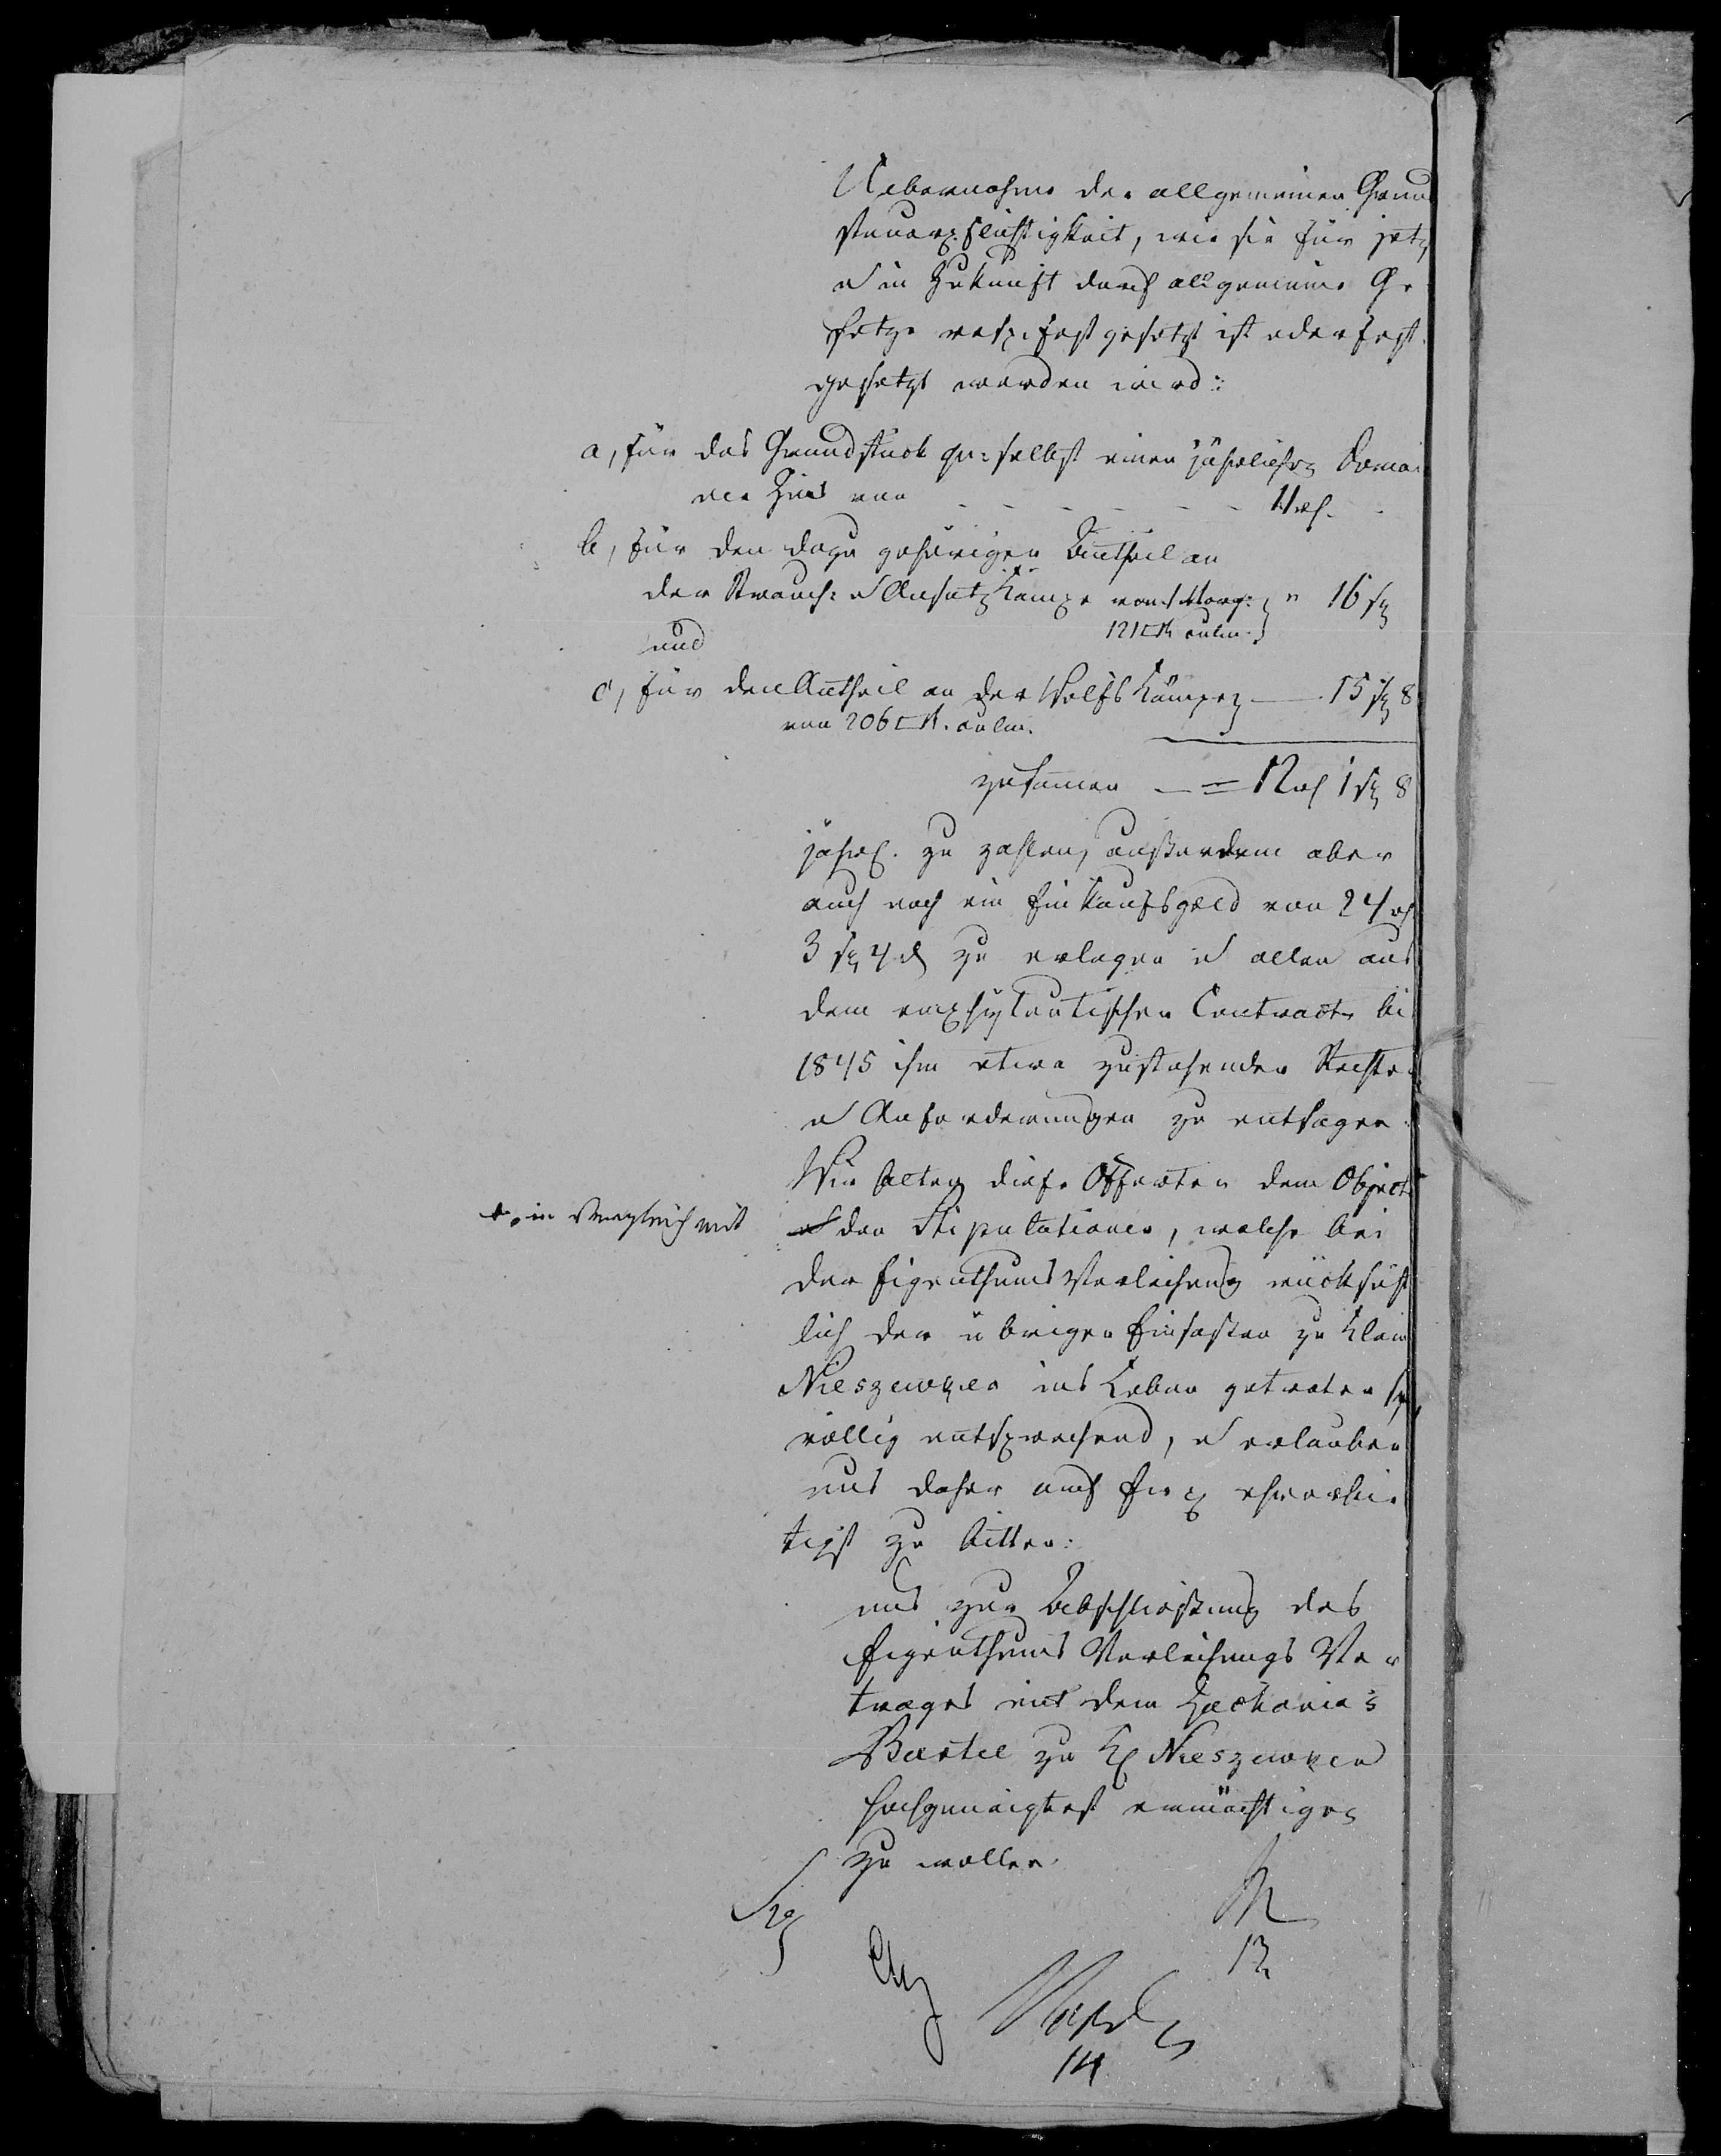 Uebernahme der allgemeinen Grund
steuerpflichtigkeit, wie sie für jetzt
u in Zukunft durch allgemeine Ge
setze resp. festgesetzt ist oder fest
gesetzt werden wird:
a, für das Grundstück qu: selbst einen jährlichen Domai
nen Zins von - - - - - - 11 rh. -
b, für den dazu gehörigen Antheil an
der Strauch- u Ansatz Kämpe von 1 Morg: " 16 sg
121 □R culm.
und
c, für den Antheil an der Wolfs Kämpe — 15 sg 8
von 206 □R. culm.
zusammen — = 12 rh 1 sg 8
jährl. zu zahlen, außerdem aber
auch noch ein Einkaufsgeld von 24 rh
3 sg 4 d zu erlegen u allen aus
dem emphyteutischen Contracte bis
1845 ihm etwa zustehenden Rechten
u Anforderungen zu entsagen.
Wir halten diese Offerten dem Objecte
+, in Vergleich mit
u den Stipulationen, welche bei
der Eigenthums Verleihung rücksicht
lich der übrigen Einsassen zu Klein
Nieszewken ins Leben getreten sind
völlig entsprechend, u erlauben
uns daher auch ehrerbie
tigst zu bitten:
uns zur Abschließung des
Eigenthums Verleihungs Ver
trages mit dem Zacharias
Bartel zu Kl Nieszewken
hochgeneigtest ermächtigen
zu wollen.
12
14